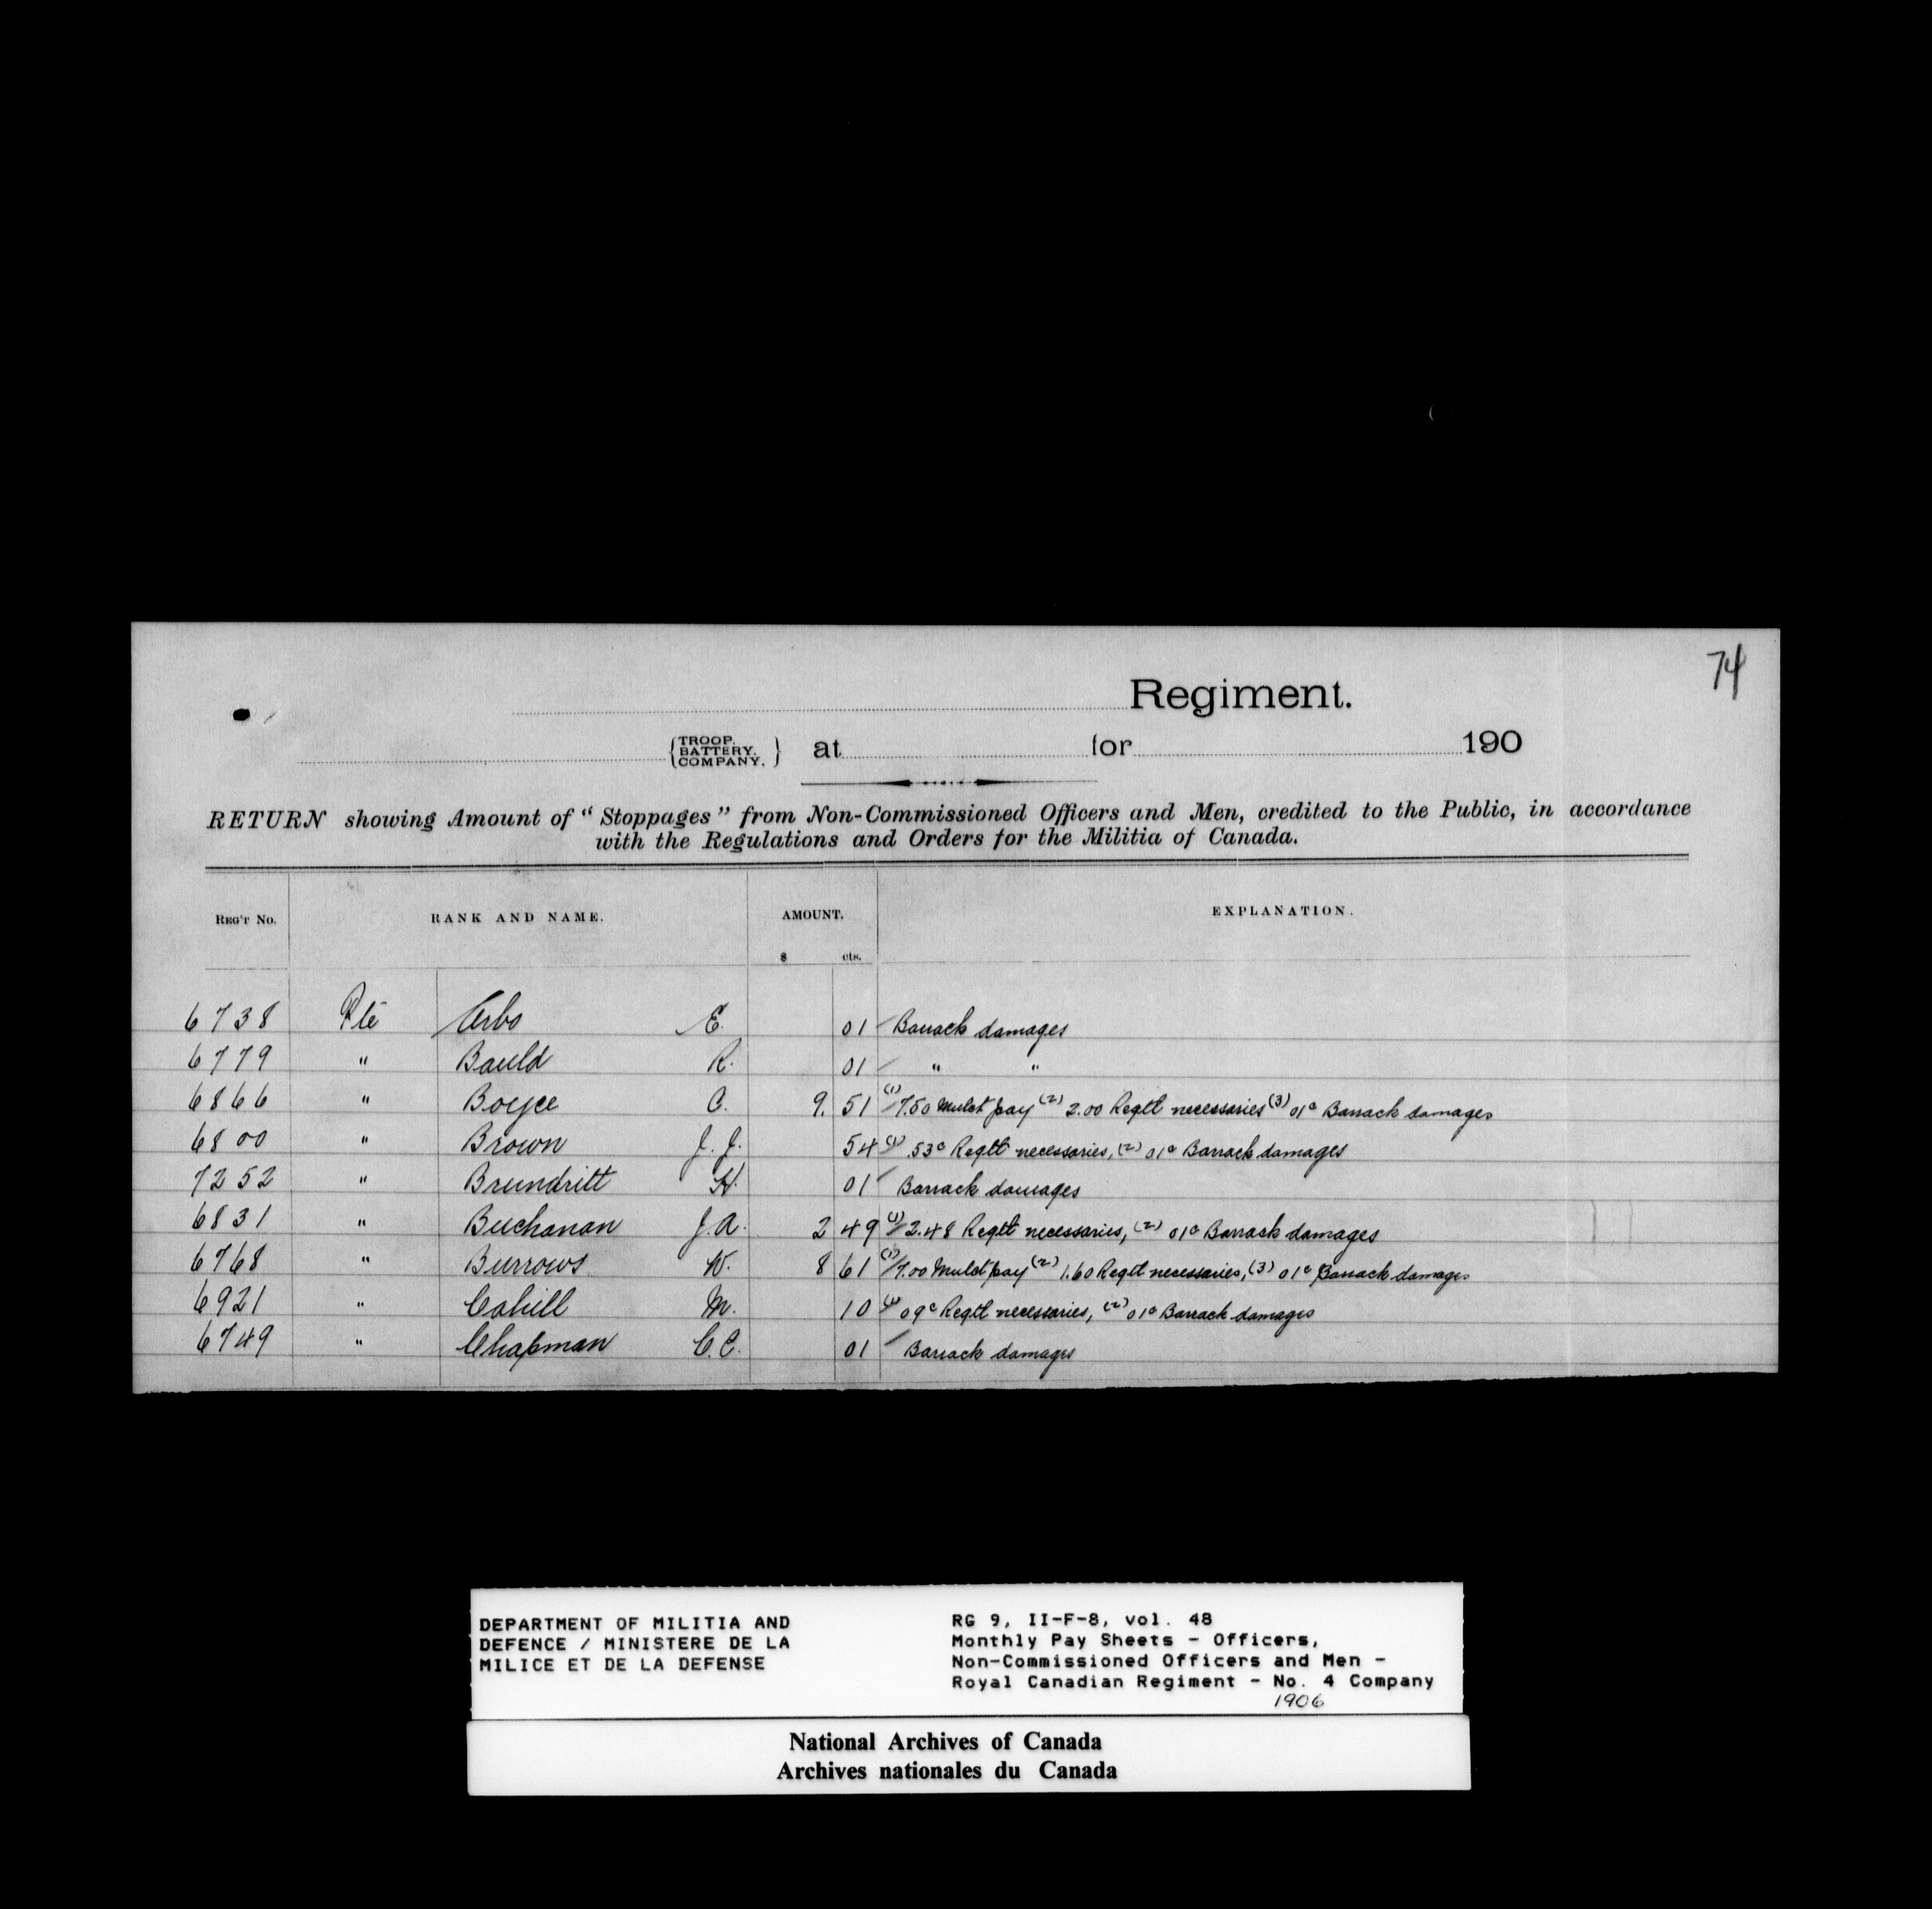 74
Regiment.
{TROOP. BATTERY. COMPANY.} at for 190
RETURN showing Amount of "Stoppages" from Non-Commissioned Officers and Men, credited to the Public, in accordance
with the Regulations and Orders for the Militia of Canada.
REG'T No. RANK AND NAME. AMOUNT. EXPLANATION.
$ cts.
6738 Pte Arbo E. 01 Barrack damages
6779 " Bauld R. 01 " "
6866 " Boyce C. 9. 51 (1) 7.50 Mulct pay (2) 2.00 Regtl necessaries (3) 01c Barrack damages
6800 " Brown J. J. 54 (1) .53c Regtl necessaries, (2) 01c Barrack damages
7252 " Brundritt H. 01 Barrack damages
6831 " Buchanan J. A. 2 49 (1) 2.48 Regtl necessaries, (2) 01c Barrack damages
6768 " Burrows W. 8 61 (1) 7.00 Mulct pay (2) 1.60 Regtl necessaries, (3) 01c Barrack damages
6921 " Cahill M. 10 (1) 09c Regtl necessaries, (2) 01c Barrack damages
6749 " Chapman C. C. 01 Barrack damages
DEPARTMENT OF MILITIA AND
DEFENCE / MINISTERE DE LA
MILICE ET DE LA DEFENSE
RG 9, II-F-8, vol. 48
Monthly Pay Sheets - Officers,
Non-Commissioned Officers and Men -
Royal Canadian Regiment - No. 4 Company
1906
National Archives of Canada
Archives nationales du Canada